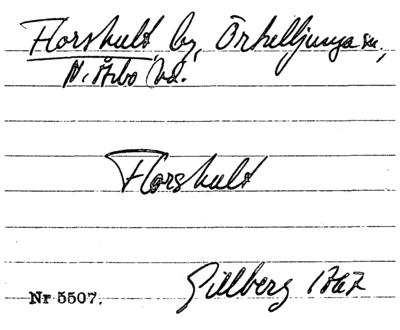 Florshult by, Örkelljunga sn,
N. Åsbo hd.
Florshult
Gillberg 1767
Nr 5507.